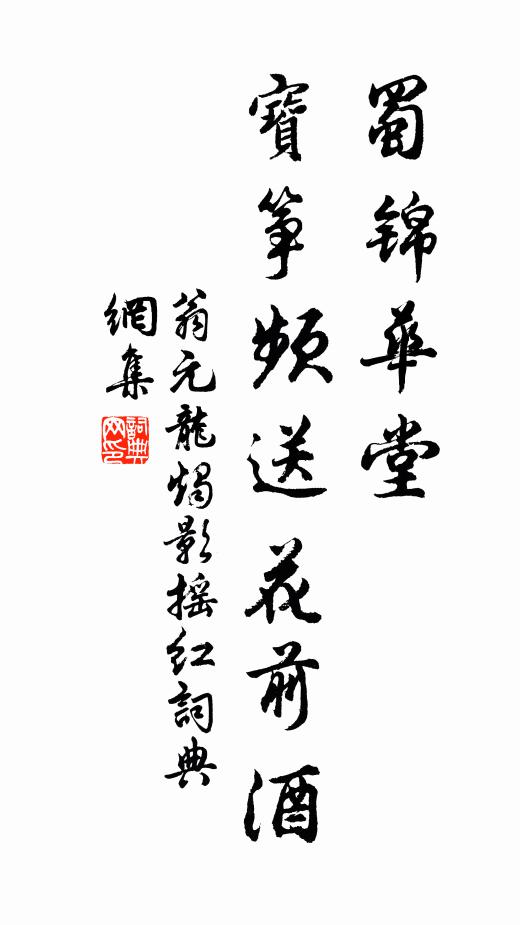 蜀锦華堂
寶筝頻送花前酒
翁元龍燭影摇红詞典
網集
詞典网印